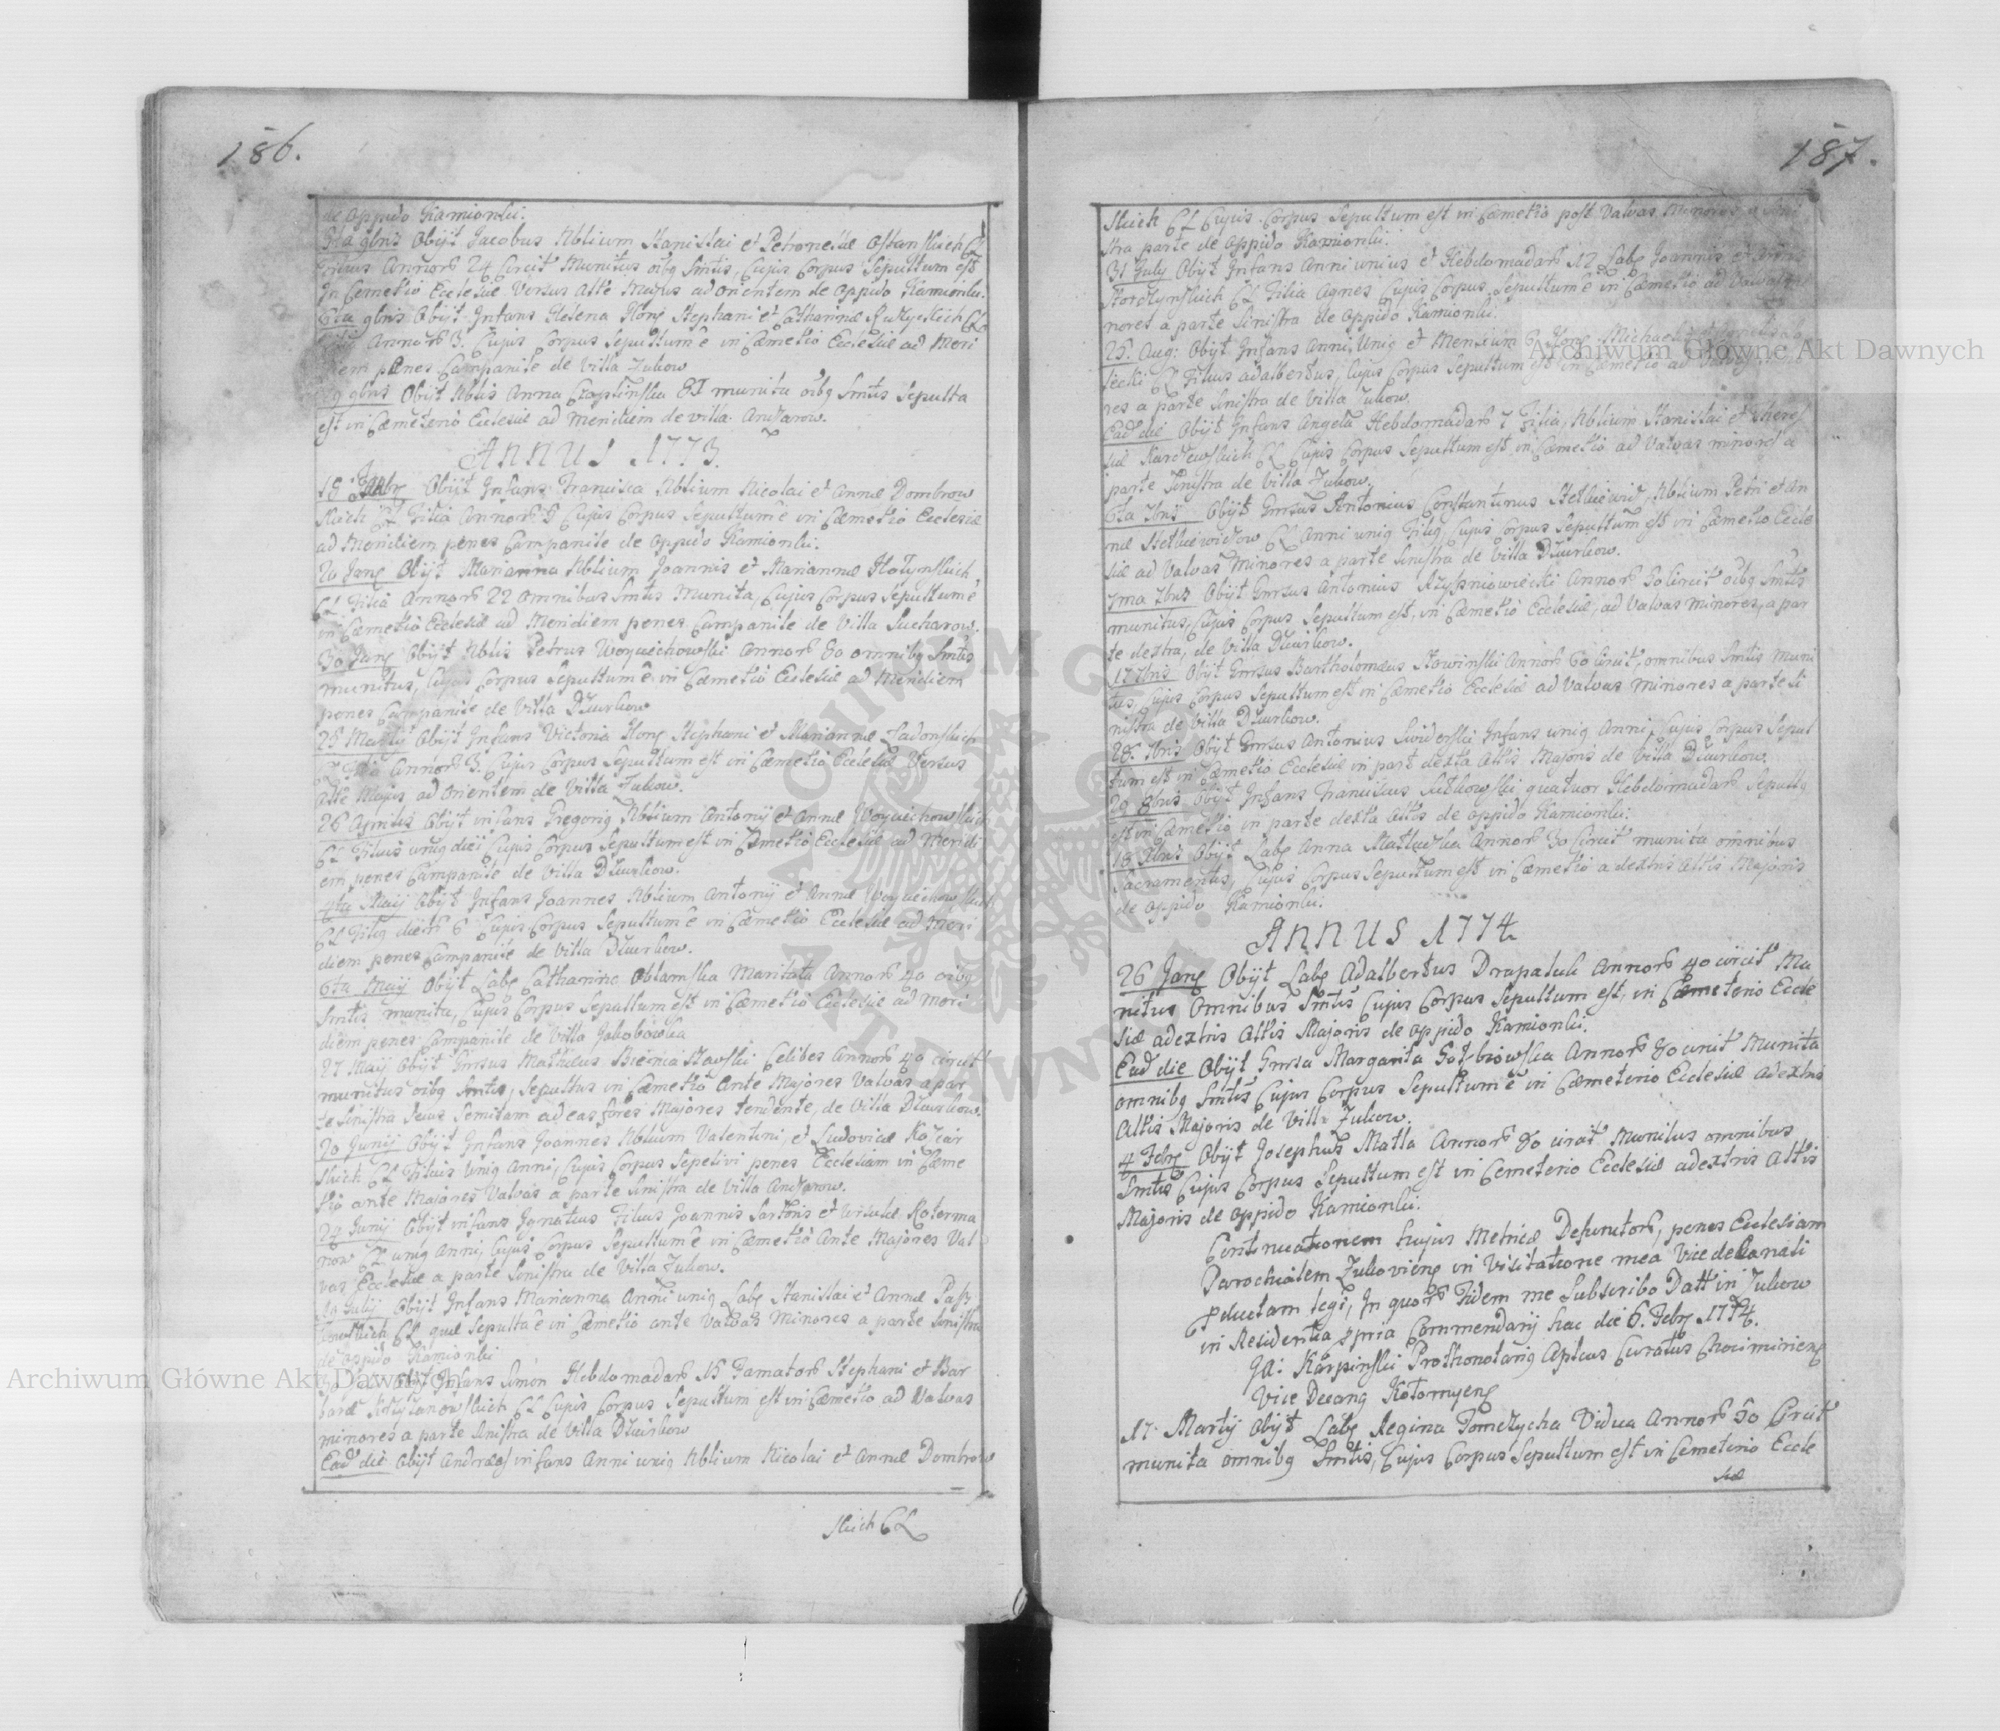 186.
de oppido Kamionki.
9bris Obijt Jacobus Nblium Stanislai et Petronellæ Ostanskich CL
Filius Annorū 24 Circit Munitus oibq Smtis, Cujus Corpus Sepultum est
In Cemetrio Ecclesiæ Versus Alte Majus ad Orientem de Oppido Kamionki.
6ta 9bris Obijt Infans Helena Hono Stephani et Catharinæ CL
Annorū 3. Cujus Corpus Sepultum ē in Cæmetrio Ecclesiæ ad Meri
diem penes Campanile de Villa Zukow
29 9bris Obijt Nblis Anna Czaplinska 81 munita oibq Smtis Sepulta
est in Cæmeterio Ecclesiæ ad Meridiem de villa
ANNUS 1773.
18 Obijt Infans Francisca Nblium Nicolai et Annæ Dombrow
skich CL Filia Annorū Cujus Corpus Sepultum ē in Cæmetrio Ecclesiæ
ad Meridiem penes Campanile de Oppido Kamionki.
26 Janq Obijt Marianna Nblium Joannis et Mariannæ
CL Filia Annorū 22 omnibus Smtis Munita, Cujus Corpus Sepultum ē
in Cæmetrio Ecclesiæ ad Meridiem penes Campanile de Villa Sucharow.
30 Janq Obijt Nblis Petrus Woyciechowski Annorū 80 omnibq Smtis
munitus, Cujus Corpus Sepultum ē in Cæmetrio Ecclesiæ ad Meridiem
penes Campanile de Villa Dzurkow
25 Martij Obijt Infans Victoria Hono Stephani et Mariannæ Zadonskich
CL Filia Annorū 3. Cujus Corpus Sepultum est in Cæmetrio Ecclesiæ Versus
Alte Majus ad Orientem de Villa Zukow.
26 Aprilis Obijt infans Gregoriq Nblium Antonij et Annæ Woyciechowskich
CL Filius uniq diei Cujus Corpus Sepultum est in Cæmetrio Ecclesiæ ad Meridi
em penes Campanile de Villa Dzurkow.
4ta Maij Obijt Infans Joannes Nblium Antonij et Annæ Woyciechowskich
CL Filiq dierū 6 Cujus Corpus Sepultum ē in Cæmetrio Ecclesiæ ad Meri
diem penes Campanile de Villa Dzurkow.
6ta Maij Obijt Labq Catharina Oblamska Maritata Annorū 40 oibq
Smtis munita, Cujus Corpus Sepultum est in Cæmetrio Ecclesiæ ad Meri
diem penes Campanile de Villa Jakobowka
27 Maij Obijt Gnrsus Mathæus Celibes Annorū 40 circit
munitus oibq Smtis, Sepultus in Cæmetrio Ante Majores Valvas a par
te Sinistra Semitam ad eas fores Majores tendente, de Villa Dzurkow.
20 Junij Obijt Infans Joannes Nblium Valentini et Ludovicæ
skich CL Filius Uniq Anni, Cujus Corpus Sepelivi penes Ecclesiam in Cæme
trio ante Majores Valvas a parte Sinistra de Villa
24 Junij Obijt infans Ignatius Filius Joannis Sartoris et Ursulæ Koterma
now CL uniq Anni, Cujus Corpus Sepultum ē in Cæmetrio Ante Majores Val
vas Ecclesiæ a parte Sinistra de Villa Zukow.
Julij Obijt Infans Marianna Anni uniq Labq Stanislai et Annæ
CL quæ Sepulta ē in Cæmetrio ante Valvas Minores a parte Sinistra
de Oppido Kamionki
Obijt Infans Simon Hebdomadarū 15 Famatorū Stephani et Bar
baræ CL Cujus Corpus Sepultum est in Cæmetrio ad Valvas
minores a parte Sinistra de Villa Dzurkow
Ead die Obijt Andreas infans Anni uniq Nblium Nicolai et Annæ Dombrow
skich CL
187.
skich CL Cujus Corpus Sepultum est in Cæmetrio post Valvas Minores, a Sini
stra parte de Oppido Kamionki.
31 July Obijt Infans Anni unius et Hebdomadarū 12 Labq Joannis et
CL Filia Agnes Cujus Corpus Sepultum ē in Cæmetrio ad Valvas Mi
nores a parte Sinistra de Oppido Kamionki.
25. Aug: Obijt Infans Anni Uniq et Mensium 3 Hono Michaelis
siecki CL Filius Adalbertus, Cujus Corpus Sepultum est in Cæmetrio ad Valvas
res a parte Sinistra de Villa Zukow.
Ead die Obijt Infans Angela Hebdomadarū 7 Filia Nblium Stanislai et There
siæ Karczewskich CL Cujus Corpus Sepultum est in Cæmetrio ad Valvas minores a
parte Sinistra de Villa Zukow.
6ta 7bris Obijt Gnrsus Antonius Constantinus Nblium Petri et An
næ CL Anni uniq Filiq Cujus Corpus Sepultum est in Cæmetrio Eccle
siæ ad Valvas Minores a parte Sinistra de Villa Dzurkow.
7ma 7bris Obijt Gnrsus Antonius Annorū 50 Circit oibq Smtis
munitus, Cujus Corpus Sepultum est, in Cæmetrio Ecclesiæ, ad Valvas Minores, a par
te dextra, de Villa Dzurkow.
17 7bris Obijt Gnrsus Bartholomæus Slowinski Annorū 60 Circit, omnibus Smtis Muni
tus, Cujus Corpus Sepultum est in Cæmetrio Ecclesiæ ad Valvas Minores a parte Si
nistra de Villa Dzurkow.
28. 7bris Obijt Gnrsus Antonius Swiderski Infans uniq Anni, Cujus Corpus Sepul
tum est in Cæmetrio Ecclesiæ in part dexta Altis Majoris de Villa Dzurkow.
29 8bris Obijt Infans Franciscus quatuor Hebdomadarū Sepultq
est in Cæmetrio in parte dexta Altis de Oppido Kamionki.
18 Xbris Obijt Labq Anna Annorū 30 Circit munita omnibus
Sacramentis, Cujus Corpus Sepultum est in Cæmetrio a dextris Altis Majoris
de Oppido Kamionki.
ANNUS 1774
26 Janq Obijt Labq Adalbertus Drapaluk Annorū 40 circit Mu
nitus Omnibus Smtis Cujus Corpus Sepultum est, in Cæmeterio Eccle
siæ adextris Altis Majoris de Oppido Kamionki.
Ead die Obijt Gnrsa Margarita Annorū 80 circit Munita
omnibq Smtis Cujus Corpus Sepultum ē in Cæmeterio Ecclesiæ adextris
Altis Majoris de Villa Zukow.
4 Febrq Obijt Josephus Matla Annorū 80 circit Munitus omnibus
Smtis Cujus Corpus Sepultum est in Cemeterio Ecclesiæ adextris Altis
Majoris de Oppido Kamionki.
Continuationem hujus Metricæ Defunctorū, penes Ecclesiam
Parochialem Zukovienq in Visitatione mea Vice decanali
pductam legi, In quorū Fidem me Subscribo Datt in Zukow
in Residentia ppria Commendarij hac die 6. Febrq 1774.
Karpinski Prothonotariq Aplicus Curatus Chocimirienq
Vice Decanq Kolomyenq
17. Martij Obijt Labq Regina Tomczycha Vidua Annorū 50 Circit
munita omnibq Smtis, Cujus Corpus Sepultum est in Cemeterio Eccle
siæ
Archiwum Główne Akt Dawnych
Archiwum Główne Akt Dawnych
ARCHIWUM GŁÓWNE AKT DAWNYCH